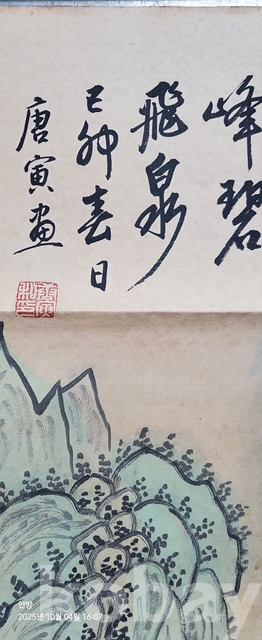 峰碧
飛泉
己卯春日
唐寅畫
안방
2025년 10월 04일 16:07